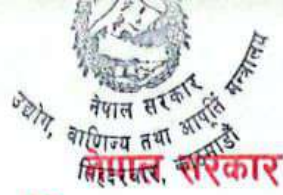 नेपाल सरकार
उद्योग, वाणिज्य तथा आपूर्ति मन्त्रालय
सिंहदरबार, काठमाडौं
नेपाल सरकार